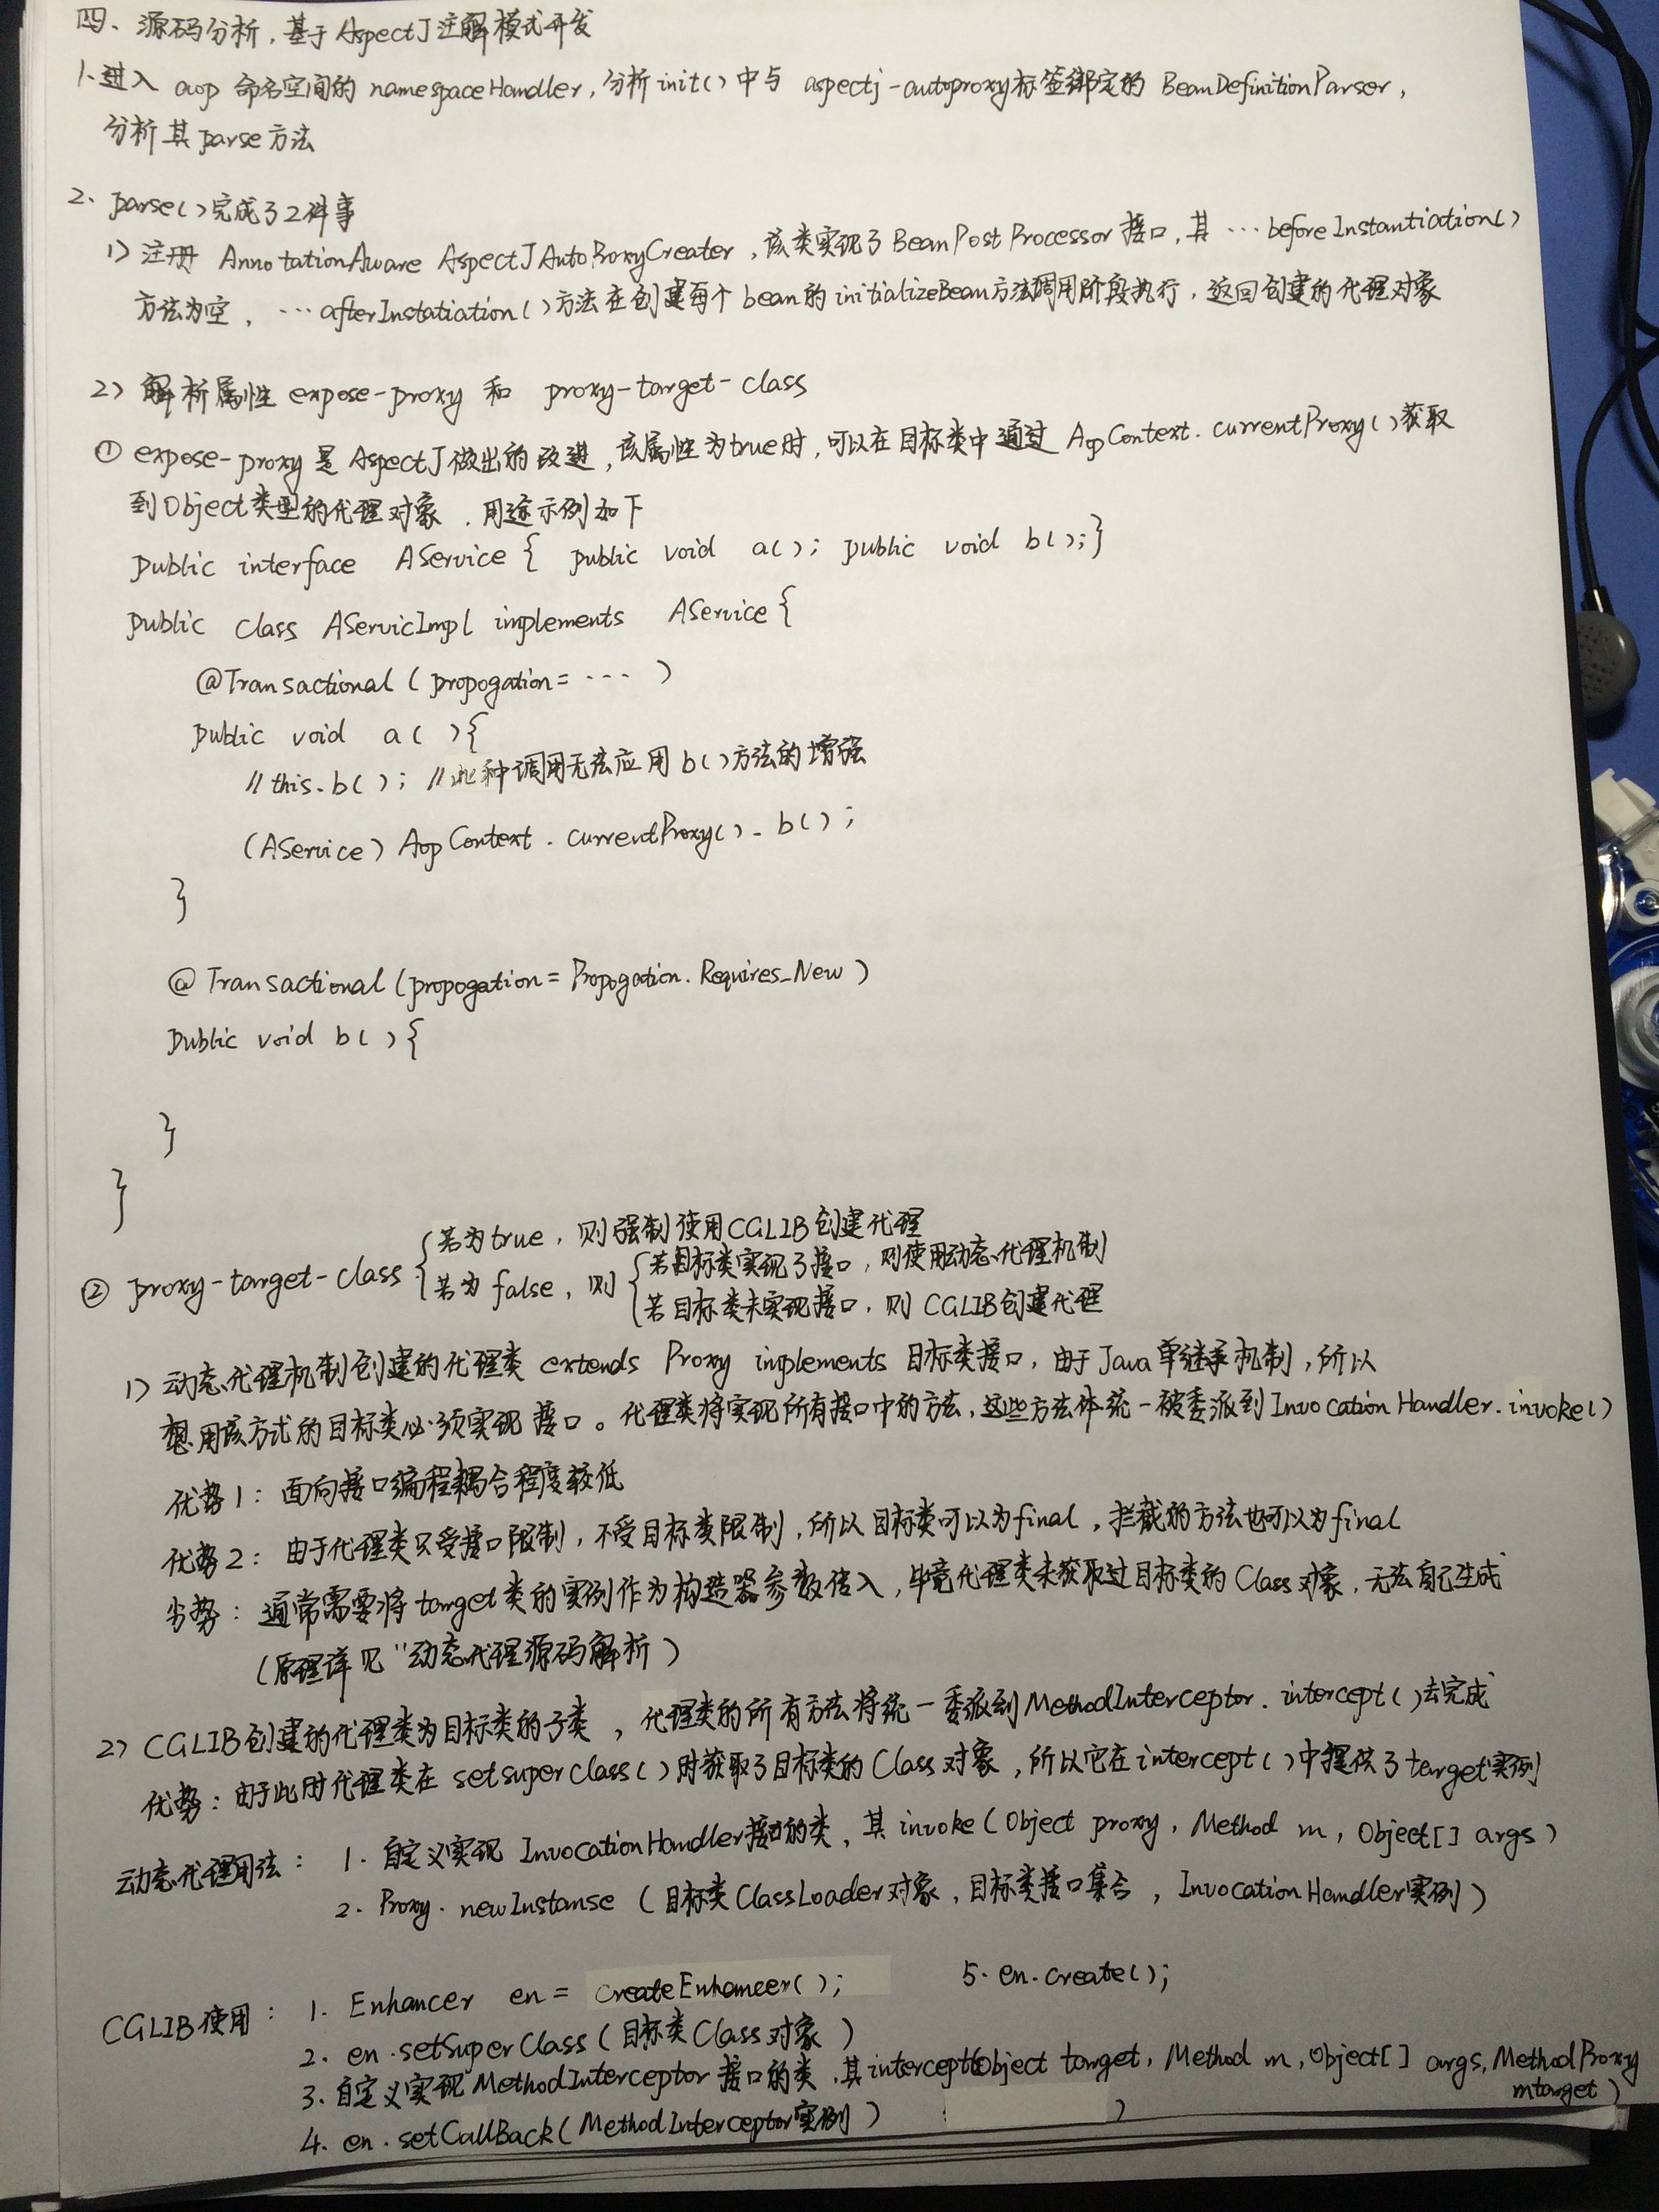 四、源码分析，基于AspectJ注解模式开发
1、进入 aop 命名空间的 namespaceHandler，分析init()中与 aspectj-autoproxy标签绑定的 BeanDefinitionParser，
分析其parse方法
2、parse()完成了2件事
1) 注册 AnnotationAware AspectJAutoProxyCreater，该类实现了BeanPostProcessor接口，其 …beforeInstantiation()
方法为空，…afterInstatiation()方法在创建每个bean的initializeBean方法调用阶段执行，返回创建的代理对象
2) 解析属性 expose-proxy 和 proxy-target-class
① expose-proxy是AspectJ做出的改进，该属性为true时，可以在目标类中通过 AopContext.currentProxy()获取
到Object类型的代理对象，用途示例如下
public interface AService { public void a(); public void b();}
public class AServicImpl implements AService {
@Transactional ( propogation= ··· )
public void a( ){
// this.b( ); //此种调用无法应用b()方法的增强
(AService) AopContext.currentProxy().b( );
}
@Transactional (propogation = Propogation.Requires_New )
public void b( ) {
}
}
② proxy-target-class { 若为true，则强制使用CGLIB创建代理
若为 false，则 { 若目标类实现了接口，则使用动态代理机制
若目标类未实现接口，则 CGLIB创建代理
1) 动态代理机制创建的代理类 extends Proxy implements 目标类接口，由于Java单继承机制，所以
想用该方式的目标类必须实现接口。代理类将实现所有接口中的方法，这些方法体统一被委派到InvocationHandler.invoke()
优势1：面向接口编程耦合程度较低
优势2：由于代理类只受接口限制，不受目标类限制，所以目标类可以为final，拦截的方法也可以为final
劣势：通常需要将target类的实例作为构造器参数传入，毕竟代理类未获取过目标类的Class对象，无法自己生成
(原理详见“动态代理源码解析)
2) CGLIB创建的代理类为目标类的子类，代理类的所有方法将统一委派到MethodInterceptor.intercept()去完成
优势：由于此时代理类在setsuperclass()时获取了目标类的Class对象，所以它在intercept()中提供了target实例
动态代理用法：1. 自定义实现 InvocationHandler接口的类，其invoke(Object proxy, Method m, Object[] args)
2. Proxy.newInstanse (目标类ClassLoader对象，目标类接口集合，InvocationHandler实例)
CGLIB使用：1. Enhancer en = createEnhancer( ); 5. en.create();
2. en.setSuperClass (目标类Class对象)
3. 自定义实现MethodInterceptor接口的类，其intercept(Object target, Method m, Object[] args, MethodProxy
mtarget)
4. en.setCallBack(MethodInterceptor实例)